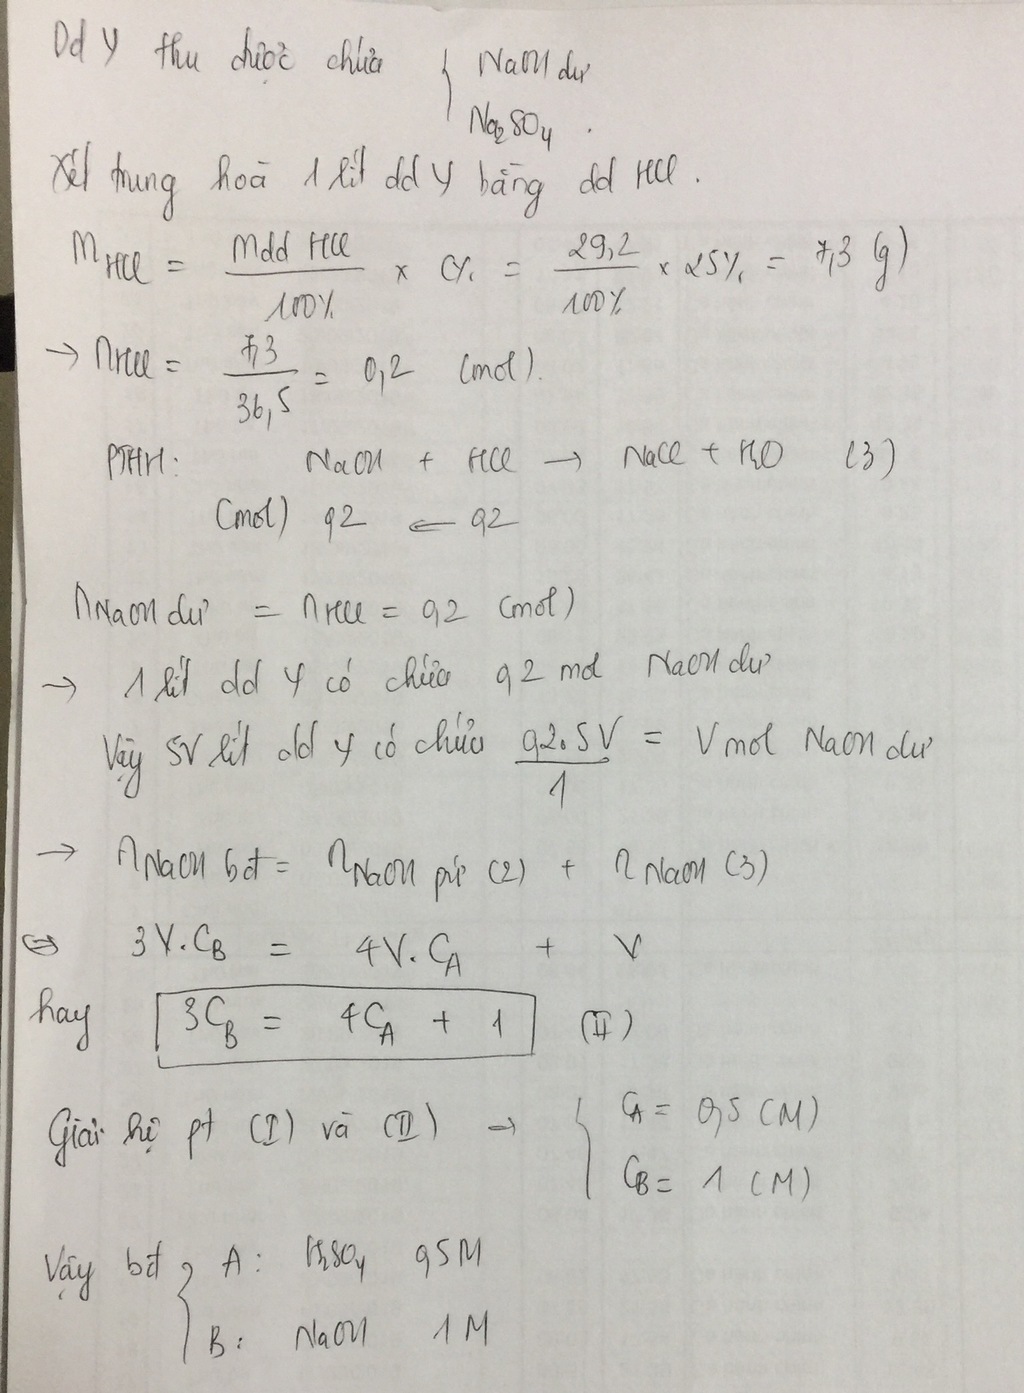 Dd Y thu được chứa { NaOH dư
Na2SO4 .
Xét trung hoà 1 lít dd Y bằng dd HCl .
mHCl = mdd HCl / 100% x C% = 29,2 / 100% x 25% = 7,3 (g)
→ nHCl = 7,3 / 36,5 = 0,2 (mol).
PTHH: NaOH + HCl → NaCl + H2O (3)
(mol) 0,2 ← 0,2
nNaOH dư = nHCl = 0,2 (mol)
→ 1 lít dd Y có chứa 0,2 mol NaOH dư
Vậy 5V lít dd Y có chứa 0,2.5V / 1 = V mol NaOH dư
→ nNaOH bđ = nNaOH pứ (2) + nNaOH (3)
⇔ 3V.CB = 4V.CA + V
hay 3CB = 4CA + 1 (II)
Giải hệ pt (I) và (II) → { CA = 0,5 (M)
CB = 1 (M)
Vậy bđ { A: H2SO4 0,5M
B: NaOH 1M